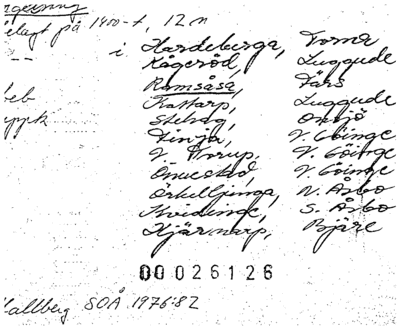 elagt på 1400-t, 12 m
i Hardeberga, Torna
Kågeröd, Luggude
Ramsåsa, Färs
Kattarp, Luggude
Stehag, Onsjö
Finja, V. Göinge
V. Torup, V. Göinge
V. Göinge
Örkelljunga, N. Åsbo
Kvidinge, S. Åsbo
Hjärnarp, Bjäre
00026126
Hallberg SOÅ 1976:82